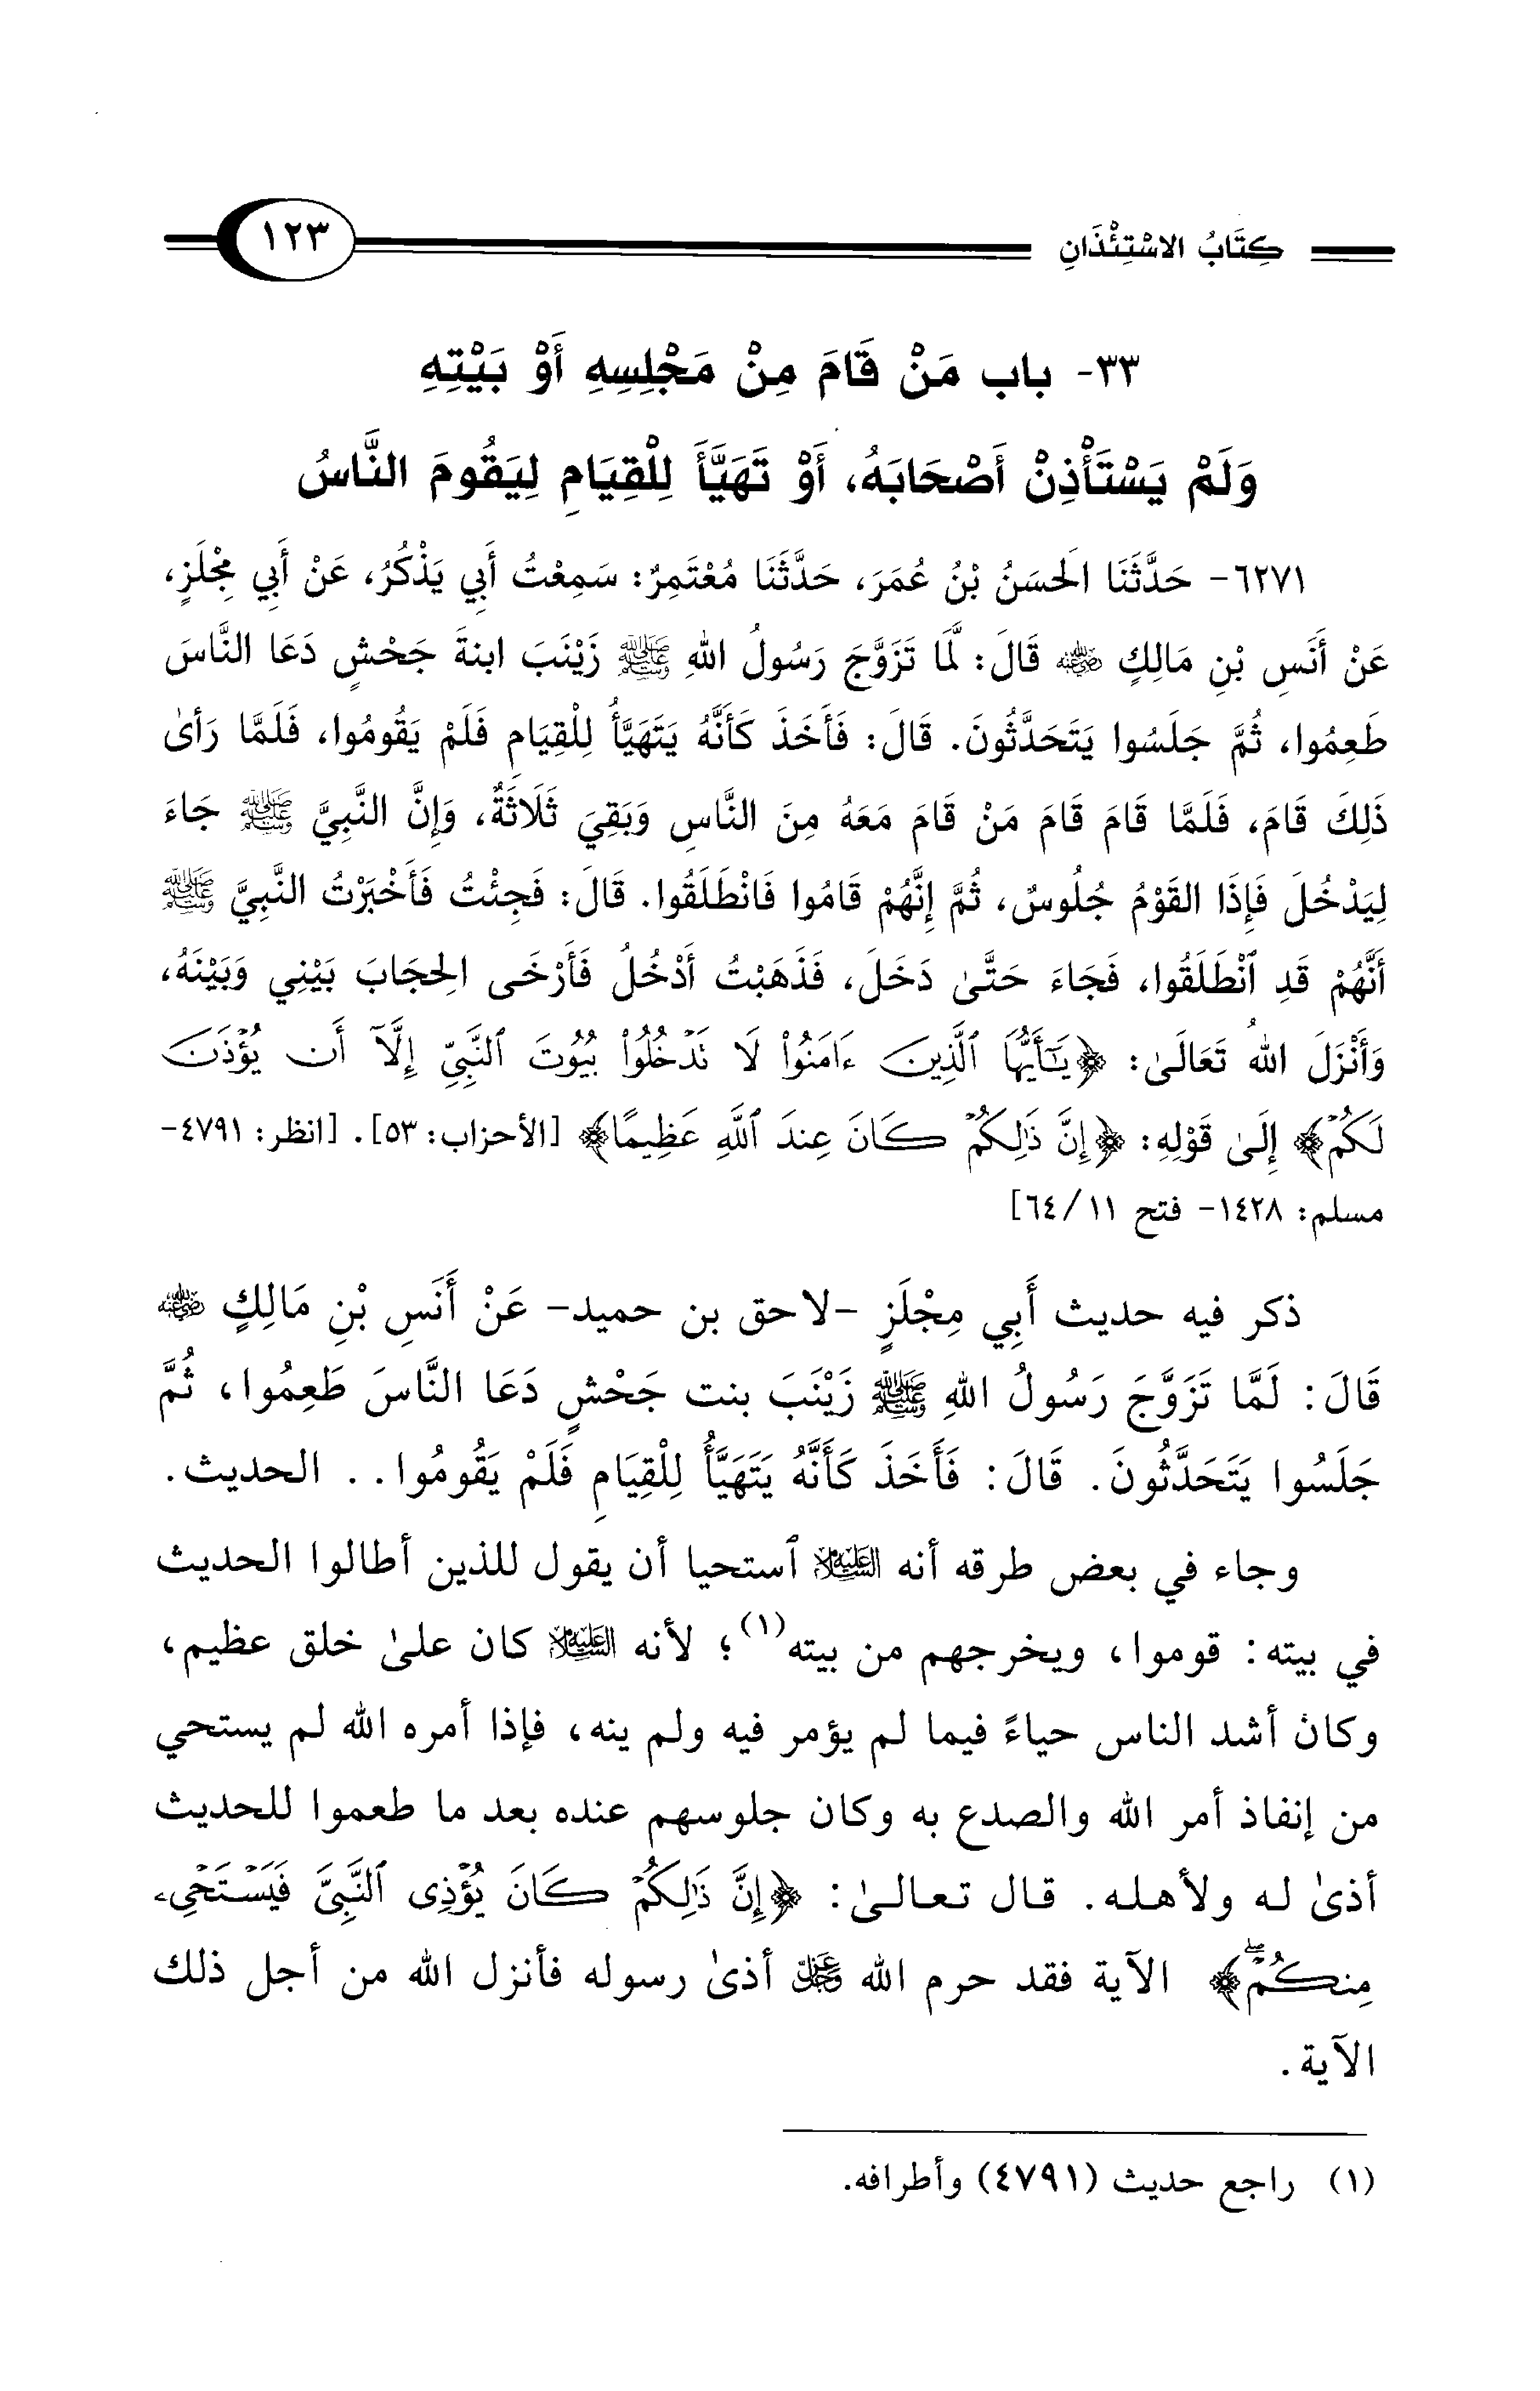 كِتَابُ الاسْتِئْذَانِ
١٢٣
٣٣- باب مَنْ قَامَ مِنْ مَجْلِسِهِ أَوْ بَيْتِهِ
وَلَمْ يَسْتَأْذِنْ أَصْحَابَهُ، أَوْ تَهَيَّأَ لِلْقِيَامِ لِيَقُومَ النَّاسُ
٦٢٧١- حَدَّثَنَا الَحسَنُ بْنُ عُمَرَ، حَدَّثَنَا مُعْتَمِرٌ: سَمِعْتُ أَبِي يَذْكُرُ، عَنْ أَبِي مِجْلَزٍ،
عَنْ أَنَسِ بْنِ مَالِكٍ رضي الله عنه قَالَ: لَّمَا تَزَوَّجَ رَسُولُ اللهِ ﷺ زَيْنَبَ ابنةَ جَحْشٍ دَعَا النَّاسَ
طَعِمُوا، ثُمَّ جَلَسُوا يَتَحَدَّثُونَ. قَالَ: فَأَخَذَ كَأَنَّهُ يَتَهَيَّأُ لِلْقِيَامِ فَلَمْ يَقُومُوا، فَلَمَّا رَأىٰ
ذَلِكَ قَامَ، فَلَمَّا قَامَ قَامَ مَنْ قَامَ مَعَهُ مِنَ النَّاسِ وَبَقِيَ ثَلَاثَةٌ، وَإِنَّ النَّبِيَّ ﷺ جَاءَ
لِيَدْخُلَ فَإِذَا القَوْمُ جُلُوسٌ، ثُمَّ إِنَّهُمْ قَامُوا فَانْطَلَقُوا. قَالَ: فَجِئْتُ فَأَخْبَرْتُ النَّبِيَّ ﷺ
أَنَّهُمْ قَدِ ٱنْطَلَقُوا، فَجَاءَ حَتَّىٰ دَخَلَ، فَذَهَبْتُ أَدْخُلُ فَأَرْخَى الِحجَابَ بَيْنِي وَبَيْنَهُ،
وَأَنْزَلَ اللهُ تَعَالَىٰ: ﴿يَٰٓأَيُّهَا ٱلَّذِينَ ءَامَنُوا۟ لَا تَدْخُلُوا۟ بُيُوتَ ٱلنَّبِىِّ إِلَّآ أَن يُؤْذَنَ
لَكُمْ﴾ إِلَىٰ قَوْلِهِ: ﴿إِنَّ ذَٰلِكُمْ كَانَ عِندَ ٱللَّهِ عَظِيمًا﴾ [الأحزاب: ٥٣]. [انظر: ٤٧٩١-
مسلم: ١٤٢٨- فتح ١١/ ٦٤]
ذكر فيه حديث أَبِي مِجْلَزٍ -لاحق بن حميد- عَنْ أَنَسِ بْنِ مَالِكٍ رضي الله عنه
قَالَ: لَمَّا تَزَوَّجَ رَسُولُ اللهِ ﷺ زَيْنَبَ بنت جَحْشٍ دَعَا النَّاسَ طَعِمُوا، ثُمَّ
جَلَسُوا يَتَحَدَّثُونَ. قَالَ: فَأَخَذَ كَأَنَّهُ يَتَهَيَّأُ لِلْقِيَامِ فَلَمْ يَقُومُوا. . الحديث.
وجاء في بعض طرقه أنه عليه السلام ٱستحيا أن يقول للذين أطالوا الحديث
في بيته: قوموا، ويخرجهم من بيته(١)؛ لأنه عليه السلام كان علىٰ خلق عظيم،
وكان أشد الناس حياءً فيما لم يؤمر فيه ولم ينه، فإذا أمره الله لم يستحي
من إنفاذ أمر الله والصدع به وكان جلوسهم عنده بعد ما طعموا للحديث
أذىٰ له ولأهله. قال تعالىٰ: ﴿إِنَّ ذَٰلِكُمْ كَانَ يُؤْذِى ٱلنَّبِىَّ فَيَسْتَحْىِۦ
مِنكُمْ ۖ﴾ الآية فقد حرم الله عز وجل أذىٰ رسوله فأنزل الله من أجل ذلك
الآية.
(١) راجع حديث (٤٧٩١) وأطرافه.